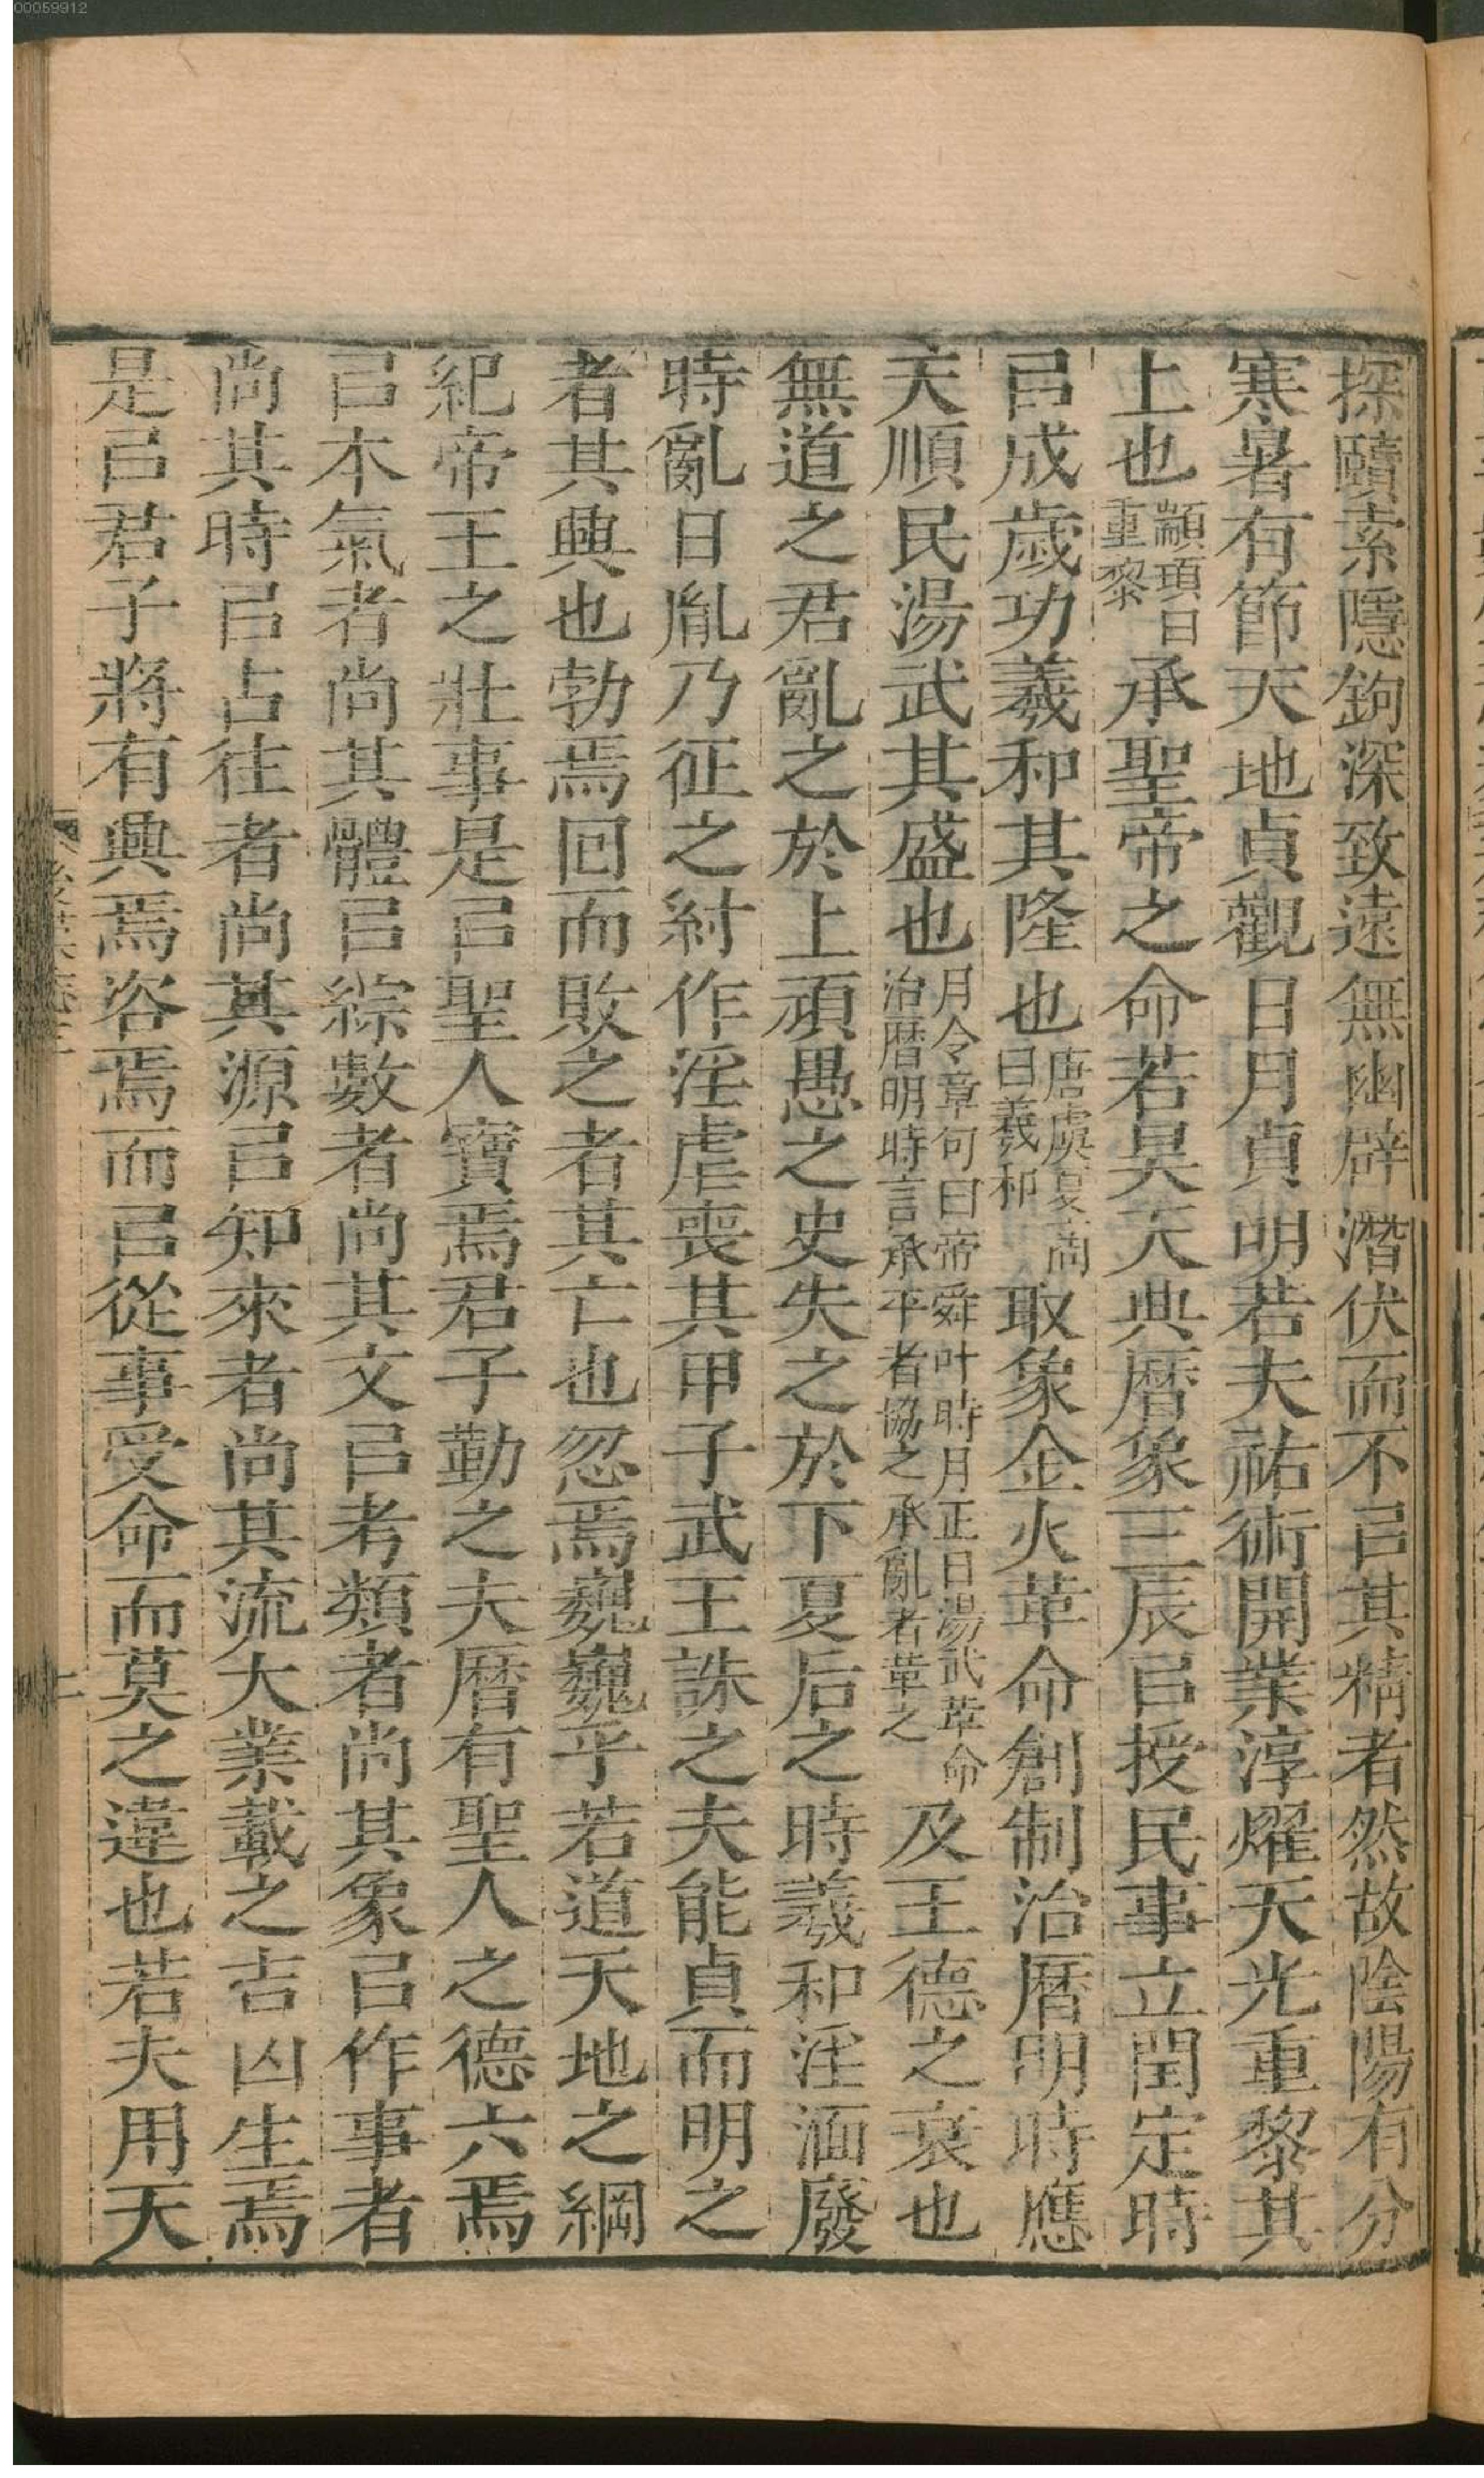 00059912
探賾索隱鉤深致遠無幽辟潛伏而不㠯其精者然故陰陽有分
寒暑有節天地貞觀日月貞明若夫祐術開業淳燿天光重黎其
上也顓頊曰重黎承聖帝之命若昊天典曆象三辰㠯授民事立閏定時
㠯成歲功羲和其隆也唐虞夏商曰羲和取象金火革命創制治曆明時應
天順民湯武其盛也月令章句曰帝舜叶時月正日湯武革命治曆明時言承平者協之承亂者革之及王德之衰也
無道之君亂之於上頑愚之史失之於下夏后之時羲和淫湎廢
時亂日胤乃征之紂作淫虐喪其甲子武王誅之夫能貞而明之
者其興也勃焉回而敗之者其亡也忽焉巍巍乎若道天地之綱
紀帝王之壯事是㠯聖人寶焉君子勤之夫曆有聖人之德六焉
㠯本氣者尚其體㠯綜數者尚其文㠯考類者尚其象㠯作事者
尚其時㠯占往者尚其源㠯知來者尚其流大業載之吉凶生焉
是㠯君子將有興焉咨焉而㠯從事受命而莫之違也若夫用天